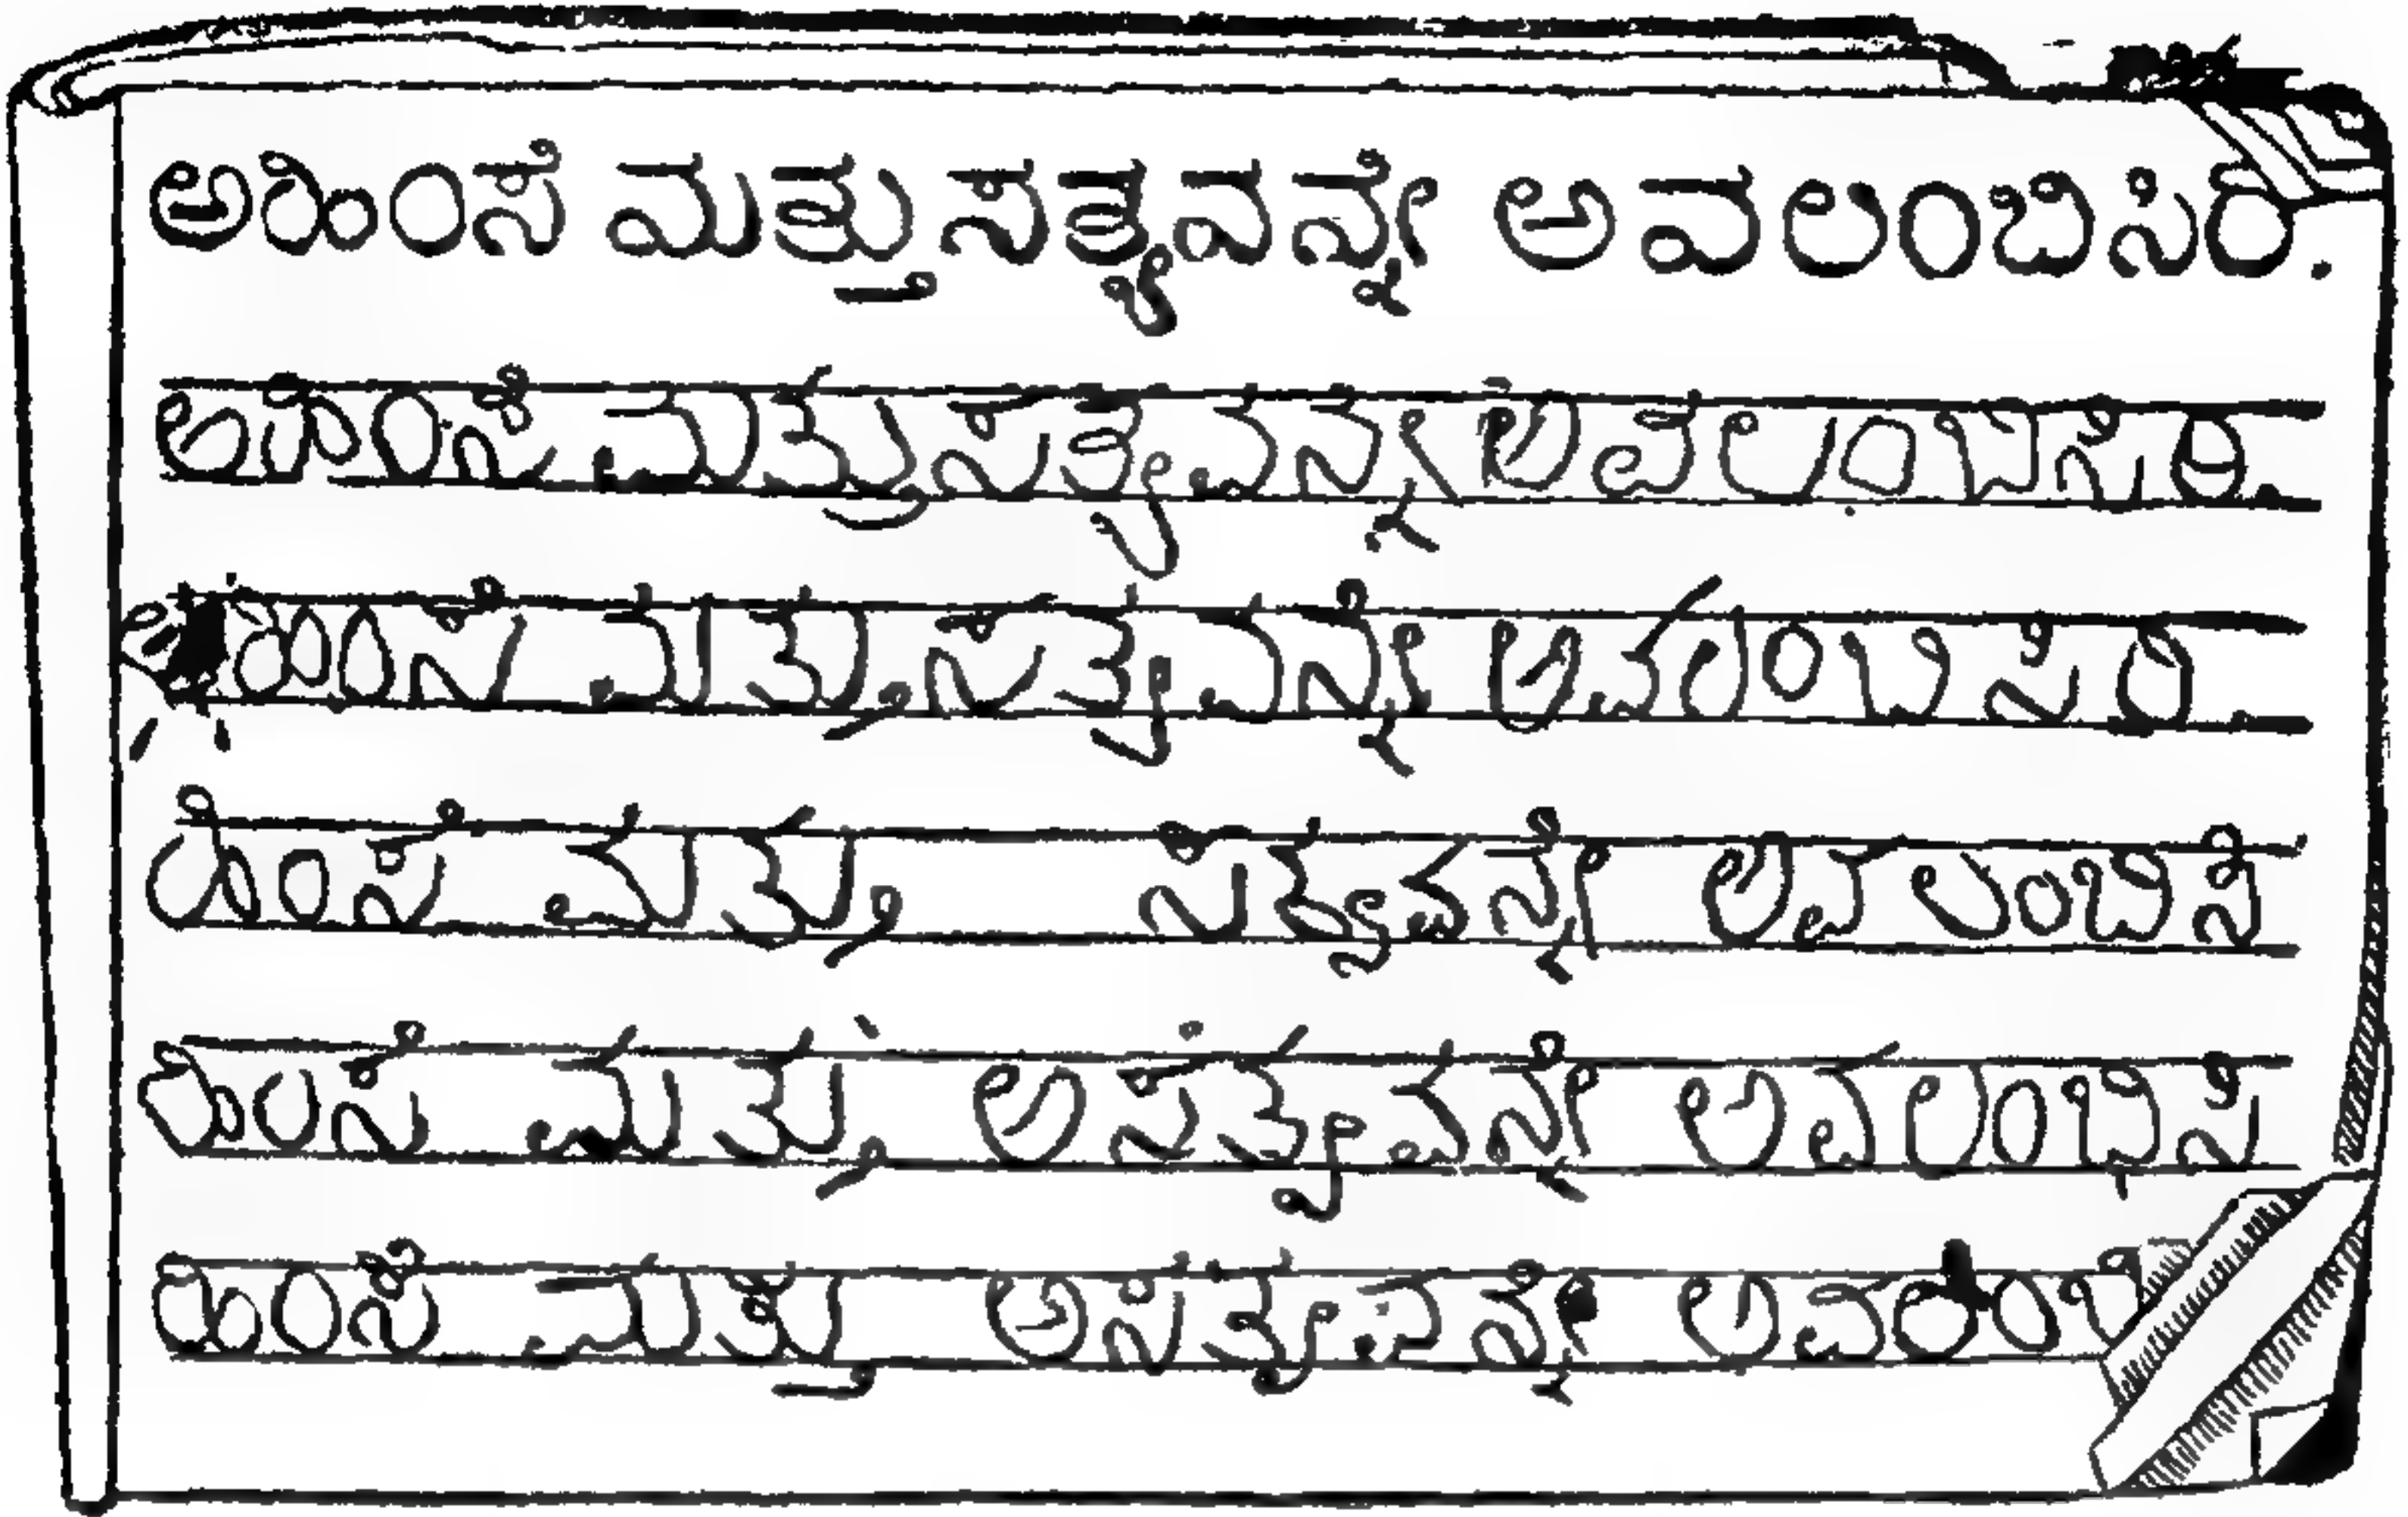 ಅಹಿಂಸೆ ಮತ್ತು ಸತ್ಯವನ್ನೇ ಅವಲಂಬಿಸಿರಿ.
ಅಹಿಂಸೆ ಮತ್ತು ಸತ್ಯವನ್ನೇ ಅವಲಂಬಿಸಿರಿ.
ಮತ್ತು ಸತ್ಯವನ್ನೇ ಅವಲಂಬಿಸಿರಿ.
ಹಿಂಸೆ ಮತ್ತು ಸತ್ಯವನ್ನೇ ಅವಲಂಬಿಸಿ
ಹಿಂಸೆ ಮತ್ತು ಅಸತ್ಯವನ್ನೇ ಅವಲಂಬಿಸಿ
ಹಿಂಸೆ ಮತ್ತು ಅಸತ್ಯವನ್ನೇ ಅವಲಂಬಿ